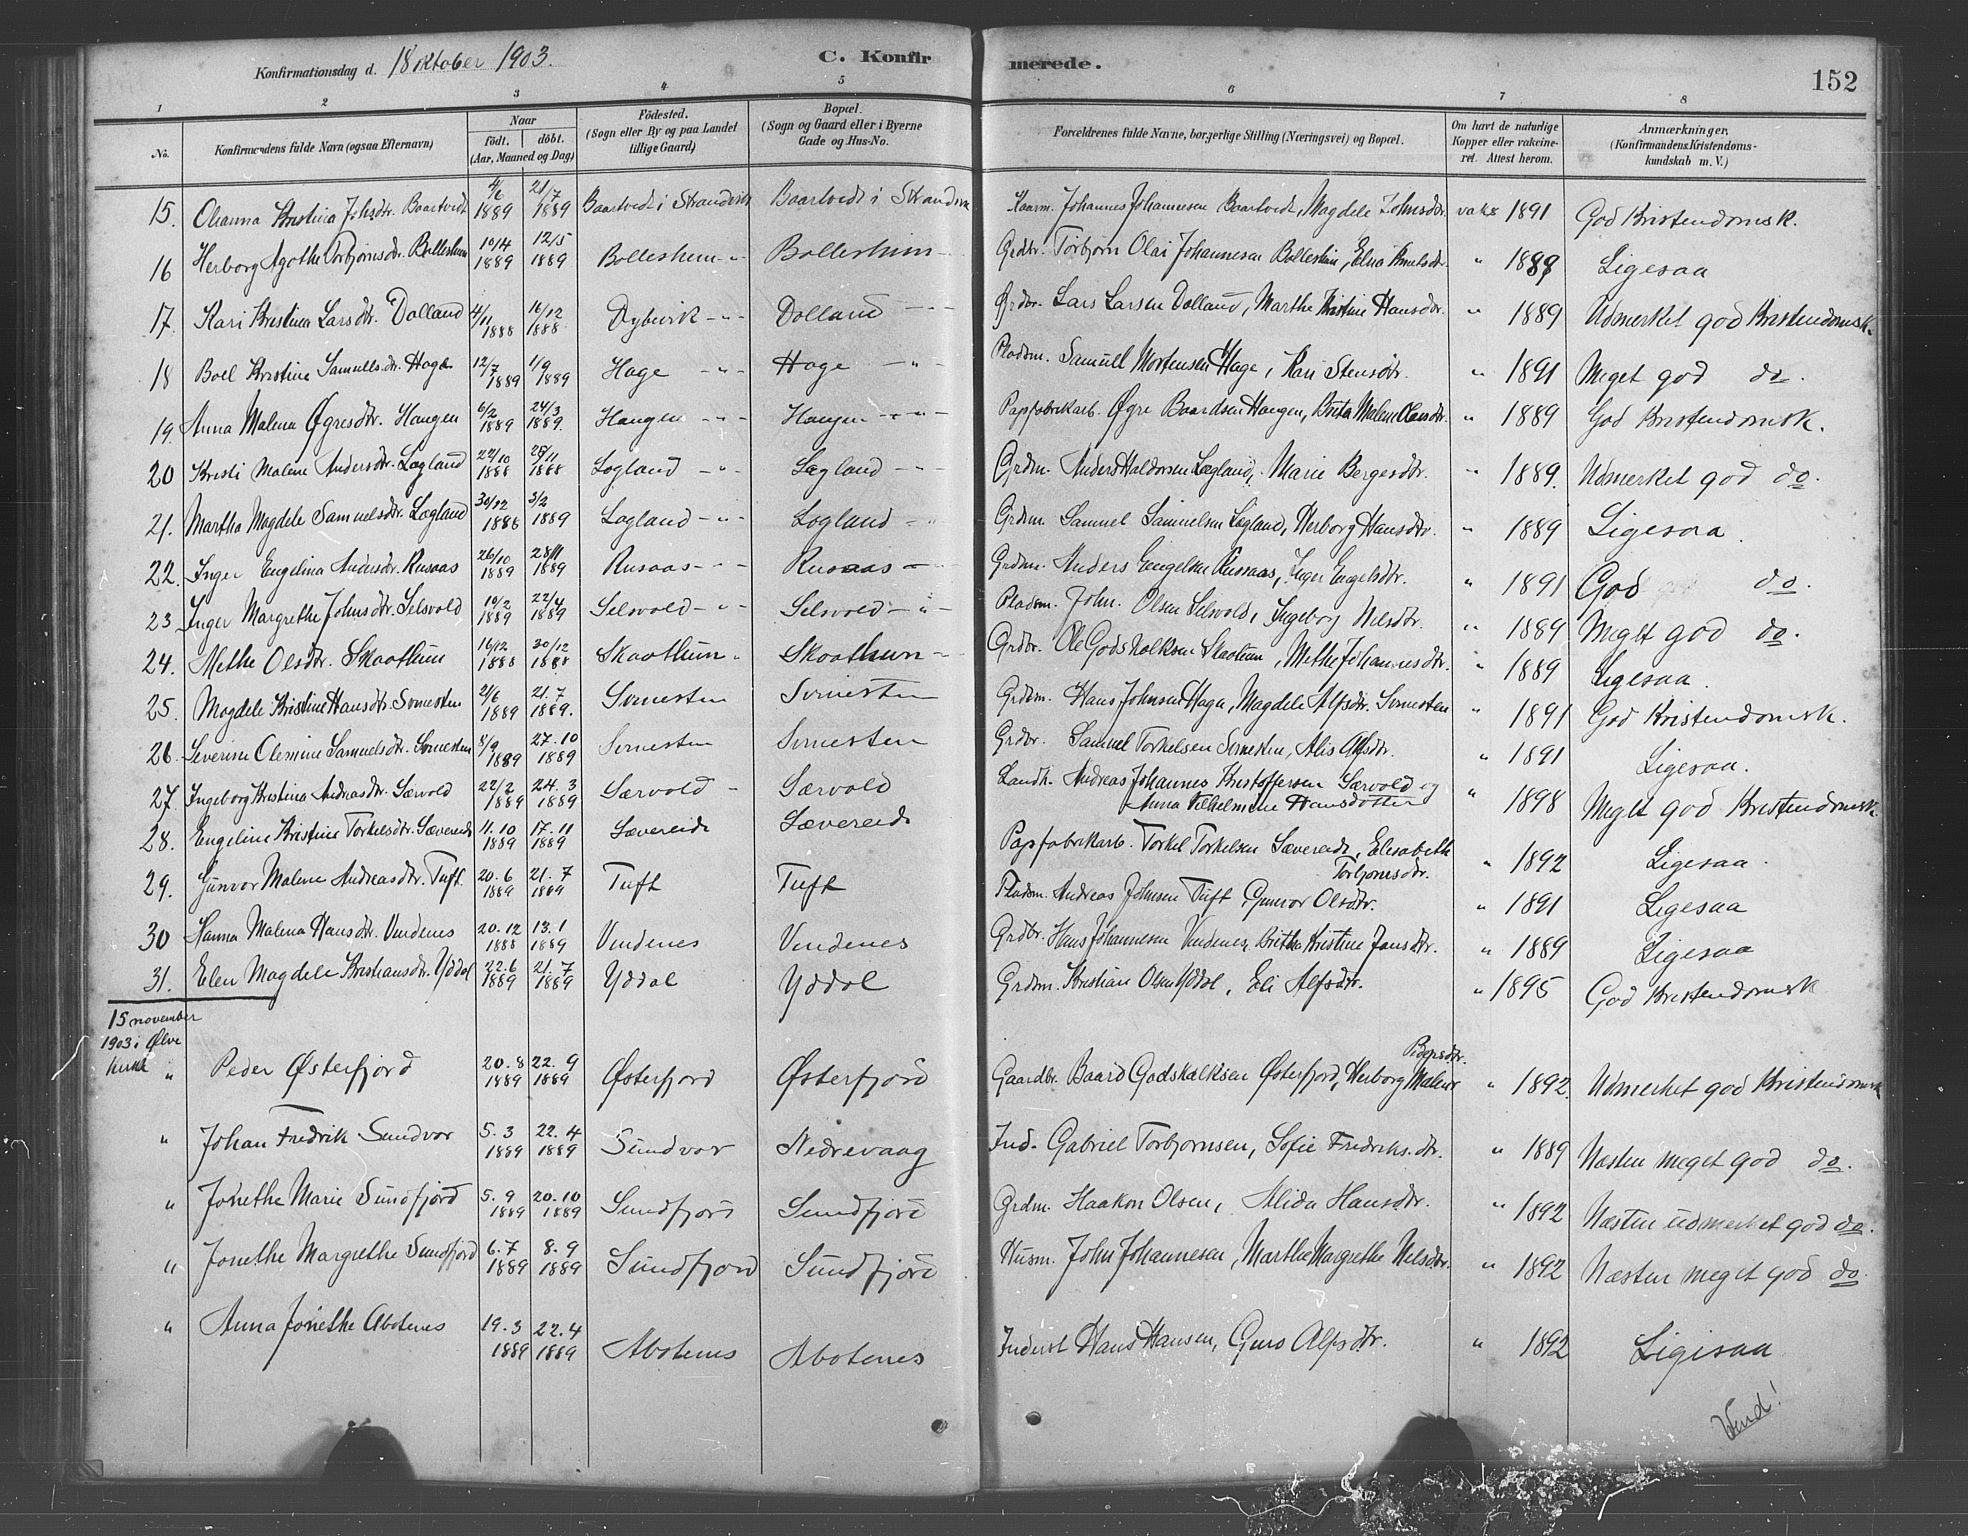 Konfirmationsdag d. 18 oktober 1903.
C. Konfirmerede.
152
1 2 3 4 5 6 7 8
No. Konfirmandens fulde Navn (ogsaa Efternavn) Naar født. døbt. (Aar, Maaned og Dag) Fødested. (Sogn eller By og paa Landet tillige Gaard) Bopæl. (Sogn og Gaard eller i Byerne Gade og Hus-No. Forældrenes fulde Navne, borgerlige Stilling (Næringsvei) og Bopæl. Om havt de naturlige Kopper eller vakcineret. Attest herom. Anmærkninger, (Konfirmandens Kristendomskundskab m. V.)
15. Oleanna Kristina Johsdtr. Baartvedt 1889 21/7 1889 Baartvedt i Strandvik Baartvedt i Strandvik Johannes Johannesen Baartvedt, Magdele Johnsdtr. vaks 1891 God Kristendomsk.
16 Herborg Agothe Torbjørnsdtr. Bolleshem 10/4 1889 12/5 1889 Bolleshem - " Bolleshem - Grdbr. Torbjørn Olai Johannesen Bolleshem, Elna Knutsdtr. " 1889 Ligesaa
17. Kari Kristina Larsdtr. Dolland 4/11 1888 16/12 1888 Dybvik - " - Dolland - " - Grdbr. Lars Larsen Dolland, Marthe Kristine Hansdtr. " 1889 Udmerket god Kristendomsk.
18 Boel Kristine Samuelsdtr. Hage 12/7 1889 1/9 1889 Hage - " - Hage - " Pladsm. Samuel Mortensen Hage, Kari Stensdtr. " 1891 Meget god do.
19. Anna Malena Øgresdtr. Haugen 6/2 1889 24/3 1889. Haugen - " - Haugen - " - Papfabrikarb. Øgre Baardsen Haugen, Brita Malene Olsdtr. " 1889 God Kristendomsk.
20 Kristi Malene Andersdtr. Lægland 22/10 1888 25/11 1888 Lægland - " - Lægland - " - Grdm. Anders Haldorsen Lægland, Marie Bergesdtr. " 1889. Udmerket god do.
21. Martha Magdele Samuelsdtr. Lægland 30/12 1888 3/2 1889 Lægland - " - Lægland - " Grdm. Samuel Samuelsen Lægland, Herborg Hansdtr. " 1889 Ligesaa.
22. Inger Engelina Andersdtr. Rusaas 26/10 1889 28/11 1889 Rusaas - " - Rusaas - " Grdm. Anders Engelsen Russaas, Inger Engelsdtr. " 1891 God do.
23. Inger Margrethe Johnsdtr. Selsvold 10/2 1889 22/4 1889 Selsvold - " - Selsvold - " - Pladsm. John Olsen Selsvold, Ingeborg Nilsdtr. " 1889 Meget god do.
24. Methe Olsdtr. Skaathun 16/12 1888 30/12 1888 Skaathun " Skaathun - Grdbr. Ole Godskalksen Skaatun, Methe Johannesdtr. " 1889 Ligesaa.
25. Magdele Kristine Hansdtr. Svinesten 2/6 1889 21.7 1889. Svinesten Svinesten Grdm. Hans Johnsen Haga, Magdele Alfsdtr. Svinesten " 1891 God Kristendomsk.
26. Severine Olemine Samuelsdtr. Svinesten 8/9 1889 27.10 1889 Svinesten Svinesten Grdbr. Samuel Torkelsen Svinesten, Alis Alfsdtr. " 1891 Ligesaa.
27. Ingeborg Kristina Andreasdtr. Særvold 22/2 1889 24.3 1889 Særvold - Særvold Landh. Andreas Johannes Kristoffersen Særvold og
Anna Vilhelmine Hansdotter " 1898 Meget god Kristendomsk.
28. Engeline Kristine Torkelsdtr. Sævereide 11.10 1889 17.11 1889 Sævereide Sævereide Papfabrikarb. Torkel Torkelsen Sævereide, Elisabeth
Torbjørnsdtr. " 1892 Ligesaa.
29. Gunvor Malene Andreasdtr. Tuft. 20.6 1889 21.7 1889 Tuft Tuft Pladsm. Andreas Johnsen Tuft, Gunvor Olsdtr. " 1891 Ligesaa
30 Hanna Malena Hansdtr. Vindenes 20.12 1888 13.1 1889 Vindenes Vindenes Grdbr. Hans Johannesen Vindenes, Britha Kristine Jansdtr. " 1889 Ligesaa
31. Elen Magdele Kristiansdtr. Yddal 22.6 1889 21.7 1889 Yddal Yddal Grdm. Kristian Olsen Yddal, Eli Alfsdtr. " 1895 God Kristendomsk
15 november
1903 i Ølve
kirke
" Peder Østerfjord 20.8 1889 22.9 1889 Østerfjord Østerfjord Gaardbr. Baard Godskalksen Østerfjord, Herborg Malene " 1892. Udmerket god Kristendomsk
" Johan Fredrik Sundvor 5.3 1889 22.4 1889 Sundvor Nedrevaag Ind. Gabriel Torbjørnsen, Sofie Fredriks.dtr. " 1889 Næsten meget god do.
" Jonethe Marie Sundfjord 5.9 1889 20.10 1889 Sundfjord Sundfjord Grdm. Haakon Olsen, Alida Hansdtr. " 1892 Næsten udmerket god do.
" Jonethe Margrethe Sundfjord 6.7 1889 8.9 1889 Sundfjord Sundfjord Husm. John Johannesen, Marthe Margrethe Nilsdtr. " 1892 Næsten meget god do.
" Anna Jonethe Abotenes 19.3 1889 22.4 1889 Abotenes Abotenes Inderst Hans Hansen, Guro Alfsdtr. " 1892 Ligesaa
Vend!